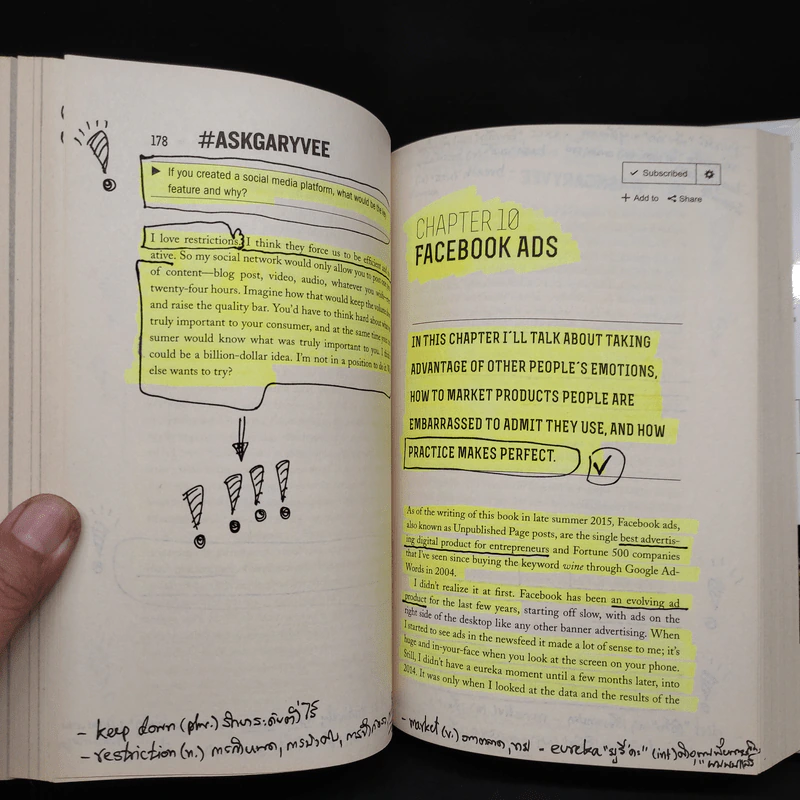 178 #ASKGARYVEE
If you created a social media platform, what would be the key
feature and why?
I love restrictions. I think they force us to be efficient and
ative. So my social network would only allow you to post one
of content—blog post, video, audio, whatever you
twenty-four hours. Imagine how that would keep the volume down
and raise the quality bar. You'd have to think hard about what
truly important to your consumer, and at the same time your
sumer would know what was truly important to you. I think
could be a billion-dollar idea. I'm not in a position to do it.
else wants to try?
- keep down (phr.) รักษาระดับต่ำไว้
- restriction (n.) การกำหนด, การบังคับ,
Subscribed
Add to Share
CHAPTER 10
FACEBOOK ADS
IN THIS CHAPTER I'LL TALK ABOUT TAKING
ADVANTAGE OF OTHER PEOPLE'S EMOTIONS,
HOW TO MARKET PRODUCTS PEOPLE ARE
EMBARRASSED TO ADMIT THEY USE, AND HOW
PRACTICE MAKES PERFECT.
As of the writing of this book in late summer 2015, Facebook ads,
also known as Unpublished Page posts, are the single best advertis-
ing digital product for entrepreneurs and Fortune 500 companies
that I've seen since buying the keyword wine through Google Ad-
Words in 2004.
I didn't realize it at first. Facebook has been an evolving ad
product for the last few years, starting off slow, with ads on the
right side of the desktop like any other banner advertising. When
I started to see ads in the newsfeed it made a lot of sense to me; it's
huge and in-your-face when you look at the screen on your phone.
Still, I didn't have a eureka moment until a few months later, into
2014. It was only when I looked at the data and the results of the
- market (v.) - eureka "ยูรีคะ" (int)